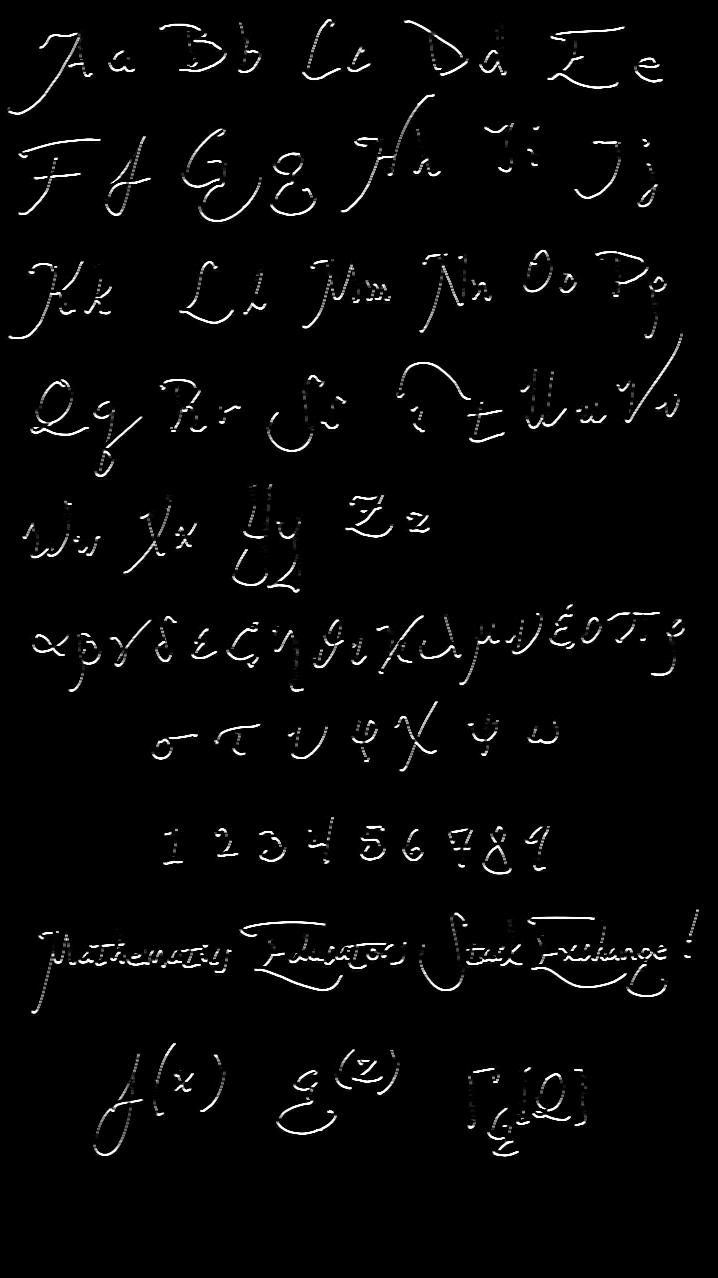 Aa Bb Cc Dd Ee
Ff Gg Hh Ii Jj
Kk Ll Mm Nn Oo Pp
Qq Rr Ss Tt Uu Vv
Ww Xx Yy Zz
α β γ δ ε ζ η θ ι κ λ μ ν ξ ο π ρ
σ τ υ φ χ ψ ω
1 2 3 4 5 6 7 8 9
Mathematics Educators Stack Exchange!
f(x) g(z)